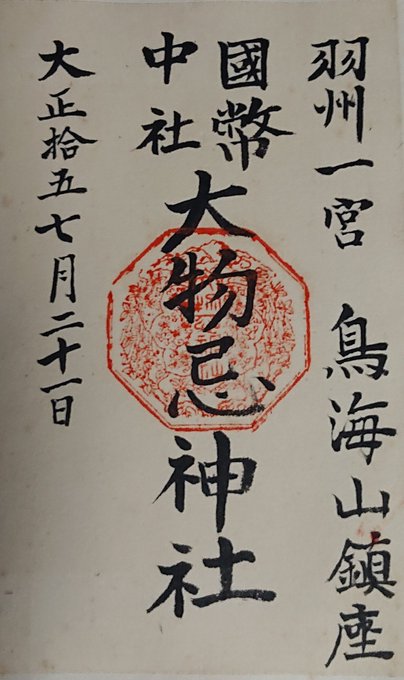 羽州一宮 鳥海山鎮座
國幣
中社
大物忌神社
大正拾五七月二十一日